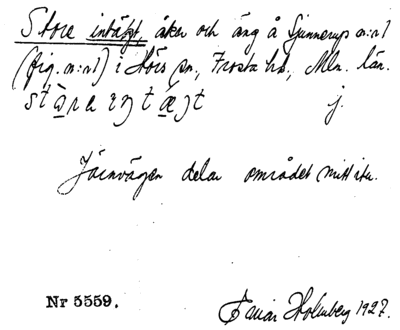 Store intägt, åker och äng å Sjunnerup n:r 1
(fig. n:r 1) i Hörs sn, Frosta hd, Mlm. län.
j.
Järnvägen delar området mitt itu.
Nr 5559.
Ejnar Holmberg 1927.